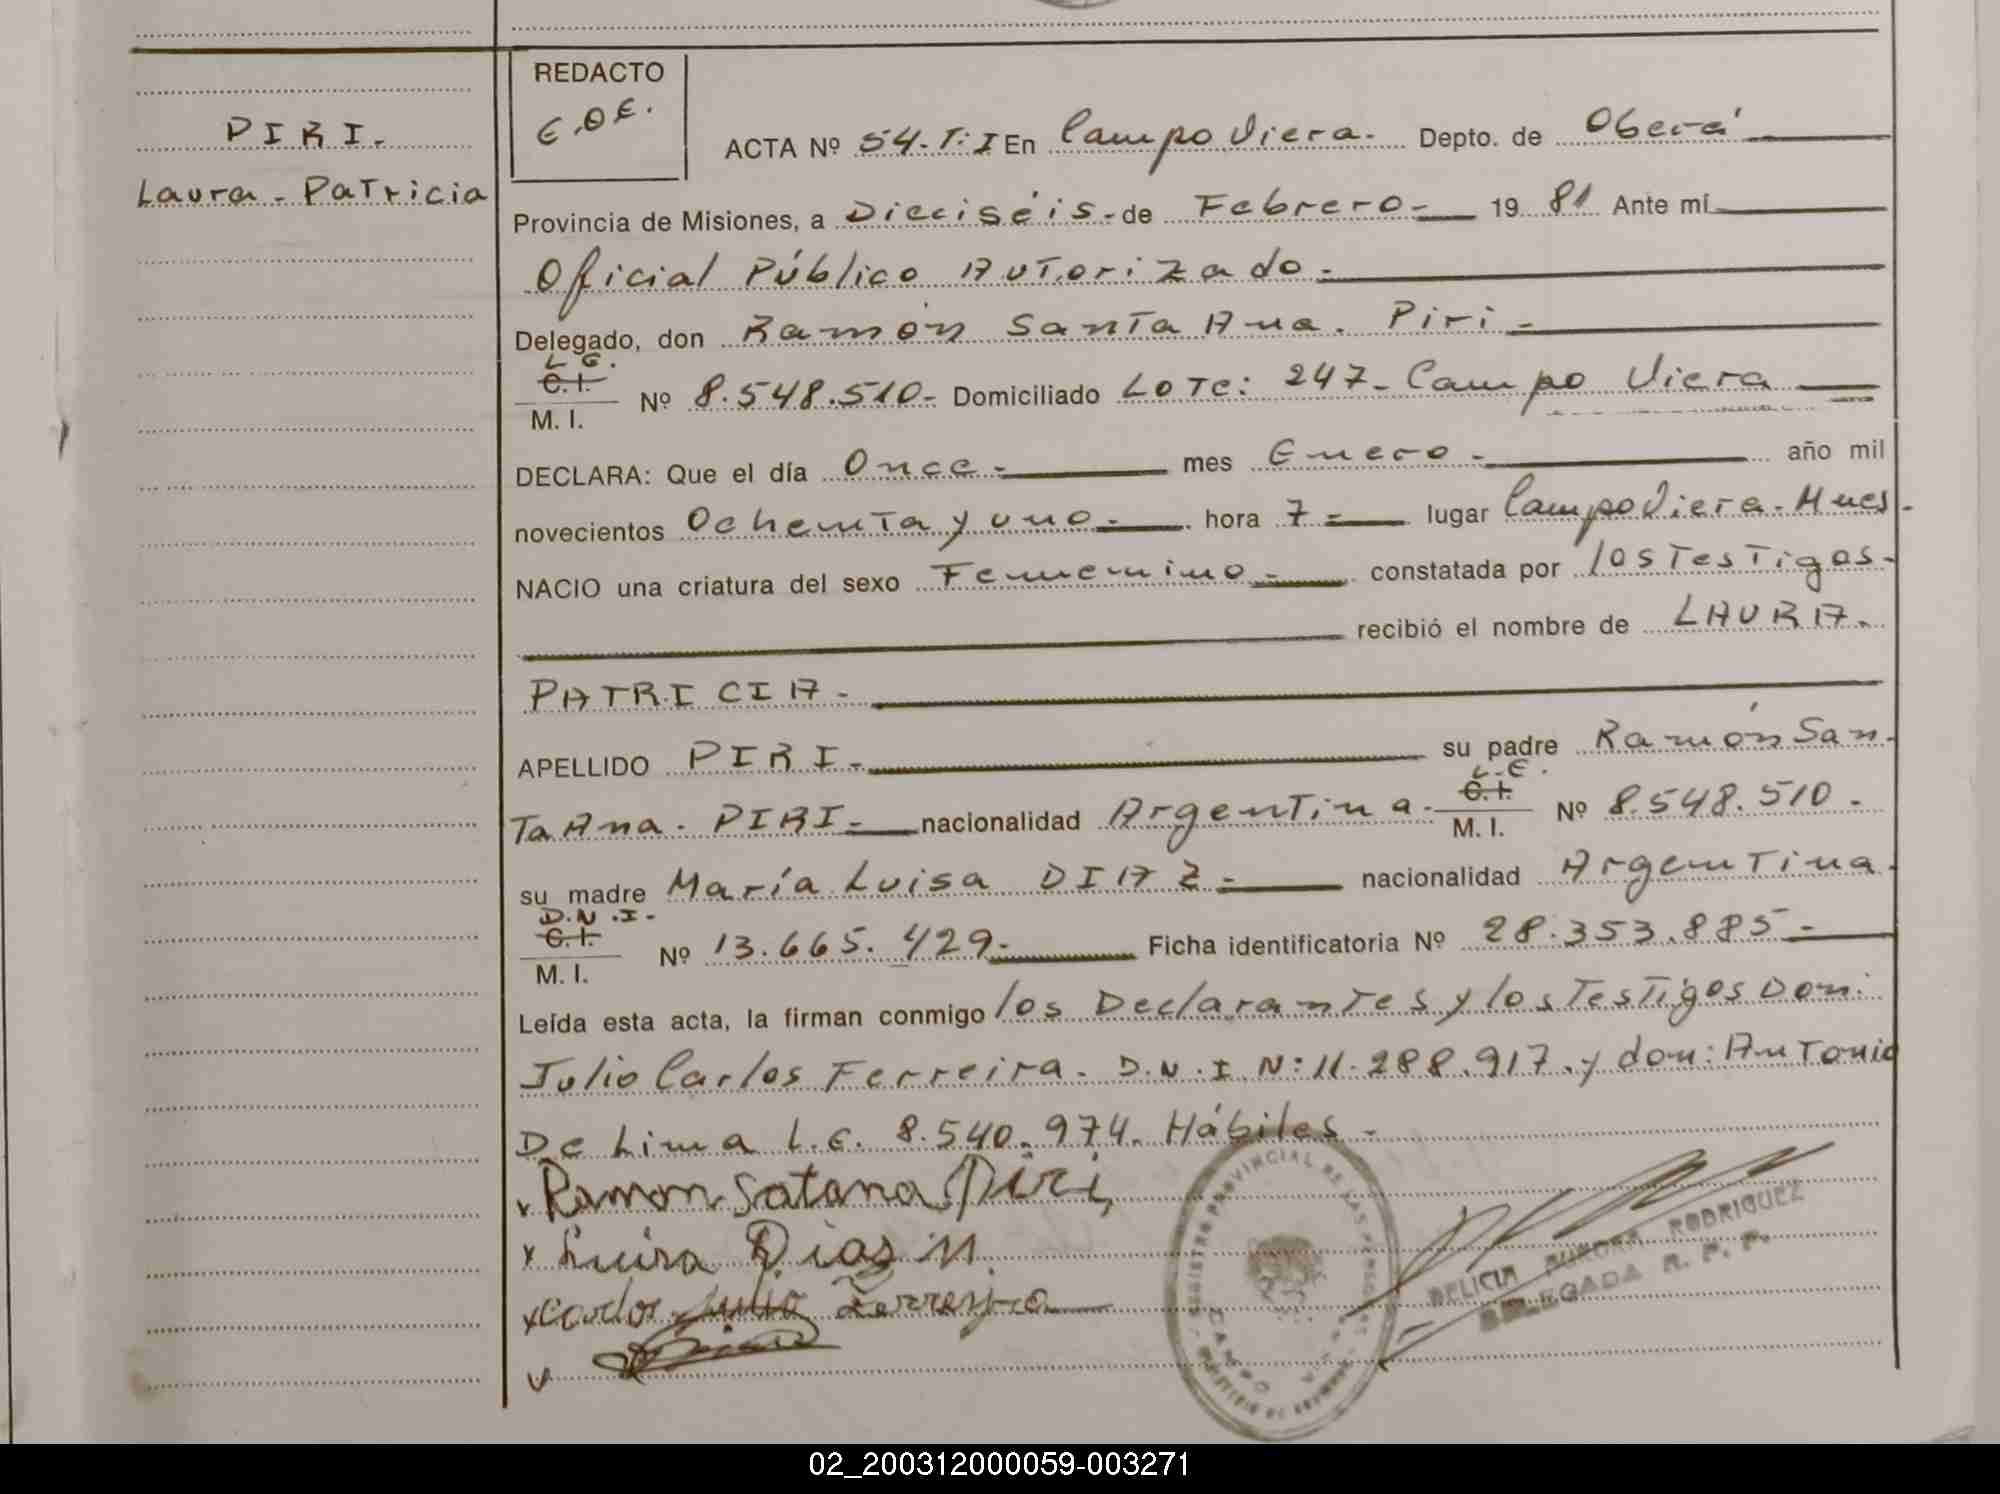 PIRI.
Laura - Patricia
REDACTO
E.O.E.
ACTA Nº 54.T:I En Campo Viera. Depto. de Oberá
Provincia de Misiones, a Dieciséis. de Febrero 1981 Ante mí
Oficial Público Autorizado.
Delegado, don Ramón Santa Ana. Piri
L.E.
C.I.
M. I. Nº 8.548.510- Domiciliado Lote: 247- Campo Viera
DECLARA: Que el día Once- mes Enero. año mil
novecientos Ochenta y uno. hora 7 lugar Campo Viera. Mnes.
NACIO una criatura del sexo Femenino constatada por los Testigos.
recibió el nombre de LAURA.
PATRICIA.
APELLIDO PIRI. su padre Ramón San-
Ta Ana. PIRI nacionalidad Argentina. L.E. C.I. M. I. Nº 8.548.510.
su madre María Luisa DIAZ nacionalidad Argentina.
D.N.I.
C.I.
M. I. Nº 13.665.429. Ficha identificatoria Nº 28.353.885
Leída esta acta, la firman conmigo los Declarantes y los Testigos Don:
Julio Carlos Ferreira. D.N.I. N: 11.288.917. y don: Antonio
De Lima L.E. 8.540.974. Hábiles.
Ramon Satana Piri
Luisa Dias M.
Carlos Julio Ferreyra
REGISTRO PROVINCIAL DE LAS PERSONAS
CAMPO VIERA
DELICIA AURORA RODRIGUEZ
DELEGADA R. P. P.
02_200312000059-003271